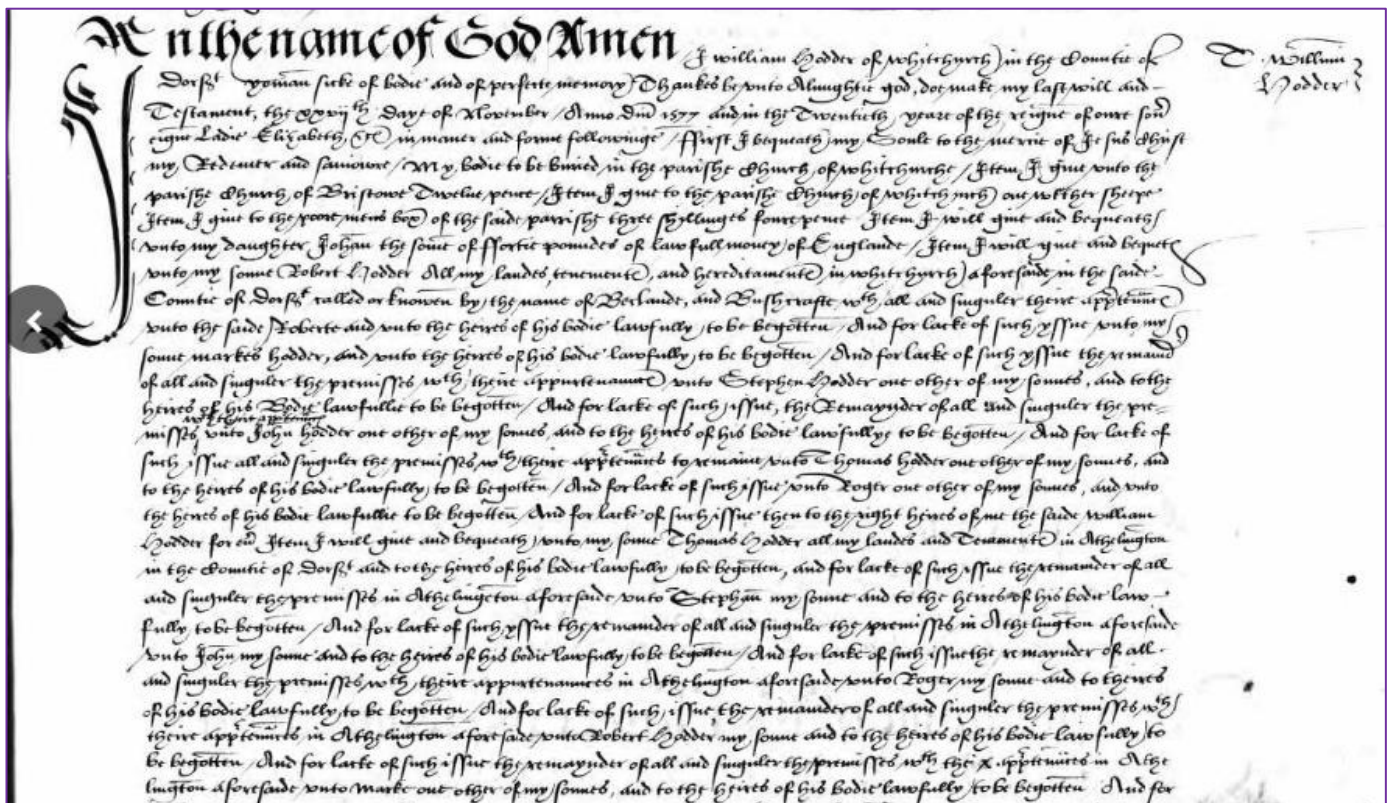 In the name of God Amen I william Hodder of whitchurch in the Countie of
T. Willmi Hodder
Dorst yoman sicke of bodie and of perfecte memory Thankes be unto Almightie god, doe make my last will and
Testament, the xxvijth daye of November Anno dm 1577 and in the Twentieth yeare of the reigne of oure son
eigne Ladie Elizabeth, &c in maner and forme followinge / ffirst I bequeath my Soule to the mercie of Jesus Christ
my Redemer and savioure / My bodie to be buried in the parishe Church of whitchurche / Item I give unto the
parishe Church of Bristowe Twelve pence / Item I give to the parishe Church of whitchurch one wether sheepe
Item I give to the poore mens box of the saide parrishe three shyllinges foure pence Item I will give and bequeath
unto my daughter Johan the some of ffortie poundes of lawfull money of Englande / Item I will give and bequeth
unto my sonne Robert Hodder All my landes, tenementes, and hereditamentes in whitchyrch aforesaide in the saide
Countie of Dorst called or knowen by the name of Berlande, and Bushcrafte wth all and singuler theire apptennces
unto the saide Roberte and unto the heires of his bodie lawfully to be begotten / And for lacke of such yssue unto my
sonne markes hodder, and unto the heires of his bodie lawfully to be begotten / And for lacke of such yssue the remaind
of all and singuler the premisses wth theire appurtenannces unto Stephen Hodder one other of my sonnes, and to the
heires of his Bodie lawfullie to be begotten / And for lacke of such issue, the Remaynder of all and singuler the pre-
wth theire apptennces
misses unto John hodder one other of my sonnes, and to the heires of his bodie lawfullye to be begotten / And for lacke of
such issue all and singuler the premisses wth theire apptennces to remaine unto Thomas hodder one other of my sonnes, and
to the heires of his bodie lawfully to be begotten / And for lacke of such issue unto Roger one other of my sonnes, and unto
the heires of his bodie lawfullie to be begotten / And for lacke of such issue then to the right heires of me the saide william
Hodder for eu Item I will give and bequeath unto my sonne Thomas Hodder all my landes and Tenamentes in Athelington
in the Countie of Dorst and to the heires of his bodie lawfully to be begotten, and for lacke of such issue the remainder of all
and singuler the premisses in Athelington aforesaide unto Stephan my sonne and to the heires of his bodie law-
fully to be begotten / And for lacke of such yssue the remainder of all and singuler the premisses in Athelington aforesaide
unto John my sonne and to the heires of his bodie lawfully to be begotten / And for lacke of such issue the remaynder of all
and singuler the premisses wth theire appurtenannces in Athelington aforesaide unto Roger my sonne and to theires
of his bodie lawfully to be begotten / And for lacke of such issue the remainder of all and singuler the premisses wth
theire apptennces in Athelington aforesaide unto Robert Hodder my sonne and to the heires of his bodie lawfully to
be begotten / And for lacke of such issue the remaynder of all and singuler the premisses wth the apptennces in Athe
lington aforesaide unto Marke one other of my sonnes, and to the heires of his bodie lawfully to be begotten And for